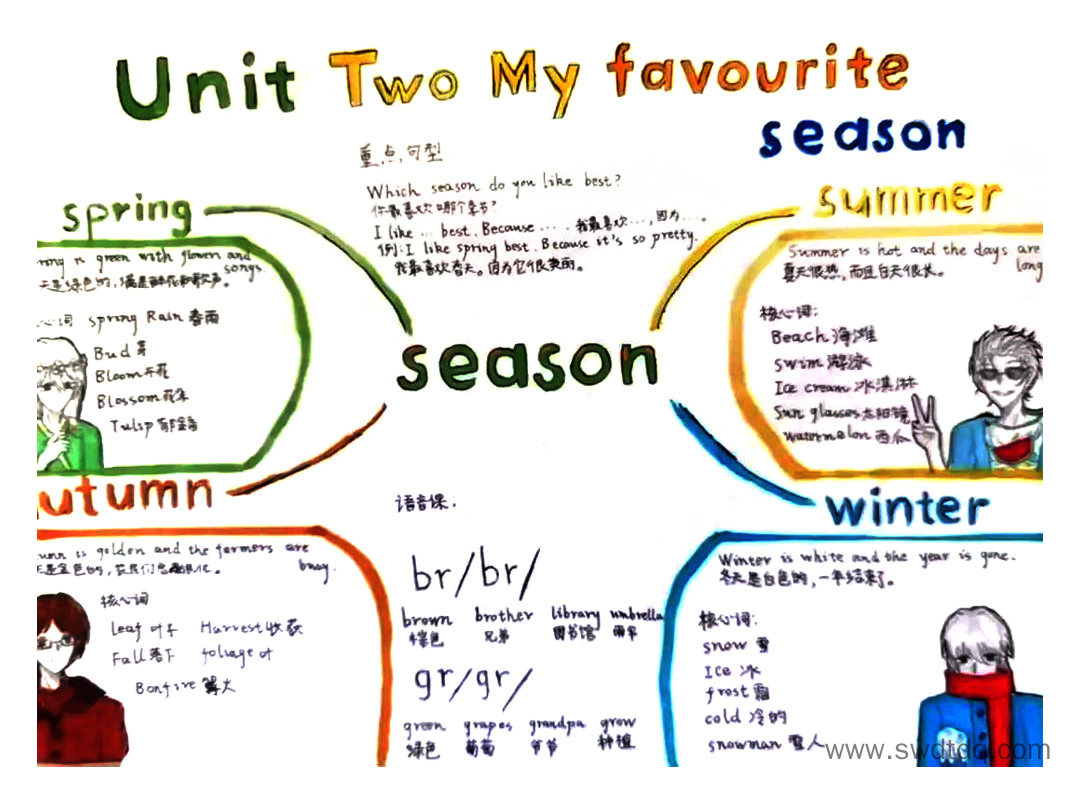 Unit Two My favourite
season
重点句型
Which season do you like best?
你最喜欢哪个季节?
I like ... best. Because .... 我最喜欢...,因为...。
例: I like spring best. Because it's so pretty.
我最喜欢春天。因为它很美丽。
season
spring
ring is green with flowers and
songs.
天是绿色的,满是鲜花和歌声。
心词 spring Rain 春雨
Bud 芽
Bloom 开花
Blossom 花朵
Tulip 郁金香
summer
Summer is hot and the days are
long
夏天很热,而且白天很长。
核心词:
Beach 海滩
swim 游泳
Ice cream 冰淇淋
Sun glasses 太阳镜
watermelon 西瓜
utumn
umn is golden and the farmers are
busy.
天是金色的,农民们忙
核心词
leaf 叶子 Harvest 收获
Fall 落下 foliage 叶
Bonfire 篝火
语音课:
br/br/
brown brother library umbrella
棕色 兄弟 图书馆 雨伞
gr/gr/
green grapes grandpa grow
绿色 葡萄 爷爷 种植
winter
Winter is white and the year is gone.
冬天是白色的,一年结束了。
核心词:
snow 雪
Ice 冰
frost 霜
cold 冷的
snowman 雪人
www.swdtdq.com